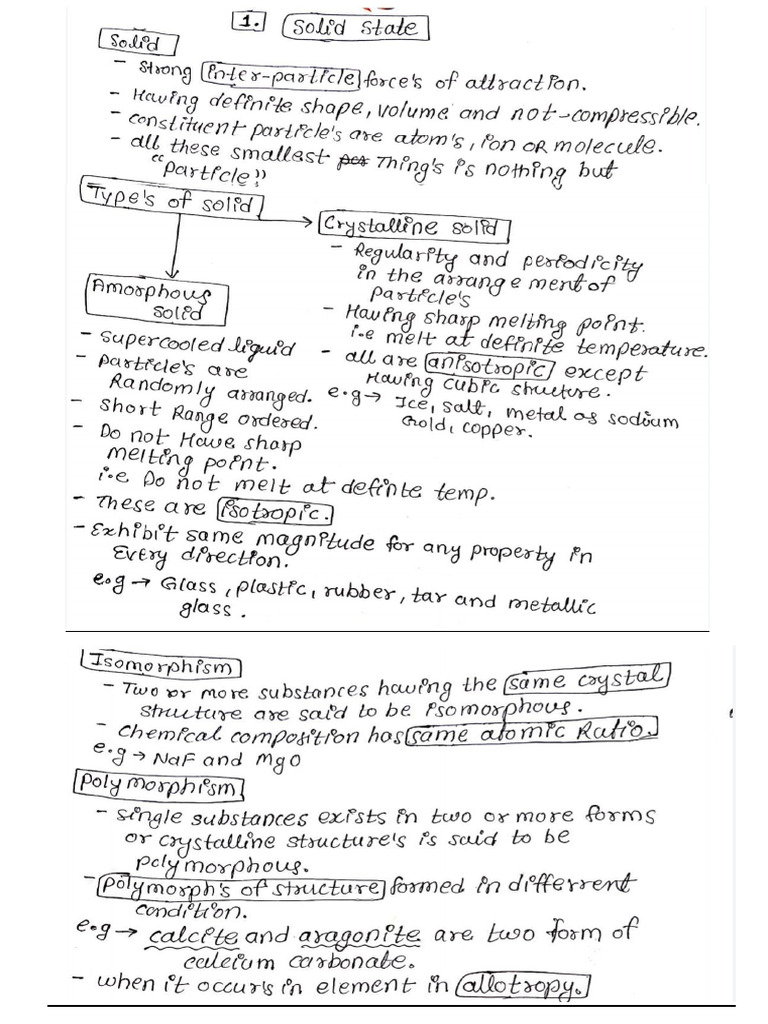 1. Solid State
Solid
- strong inter-particle force's of attraction.
- Having definite shape, volume and not-compressible.
- constituent particle's are atom's, ion OR molecule.
- all these smallest Thing's is nothing but
"particle"
Type's of solid
Crystalline solid
- Regularity and periodicity
in the arrangement of
particle's
- Having sharp melting point.
i.e melt at definite temperature.
- all are anisotropic except
Having cubic structure.
e.g → Ice, salt, metal as sodium
Gold, copper.
Amorphous
solid
- supercooled liquid
- Particle's are
Randomly arranged.
- short Range ordered.
- Do not Have sharp
melting point.
i.e Do not melt at definte temp.
- These are isotropic.
- Exhibit same magnitude for any property in
Every direction.
e.g → Glass, plastic, rubber, tar and metallic
glass.
Isomorphism
- Two or more substances having the same crystal
structure are said to be isomorphous.
- chemical composition has same atomic Ratio.
e.g → NaF and MgO
Polymorphism
- single substances exists in two or more forms
or crystalline structure's is said to be
polymorphous.
- polymorph's of structure formed in differrent
condition.
e.g → calcite and aragonite are two form of
calcium carbonate.
- when it occur's in element in allotropy.